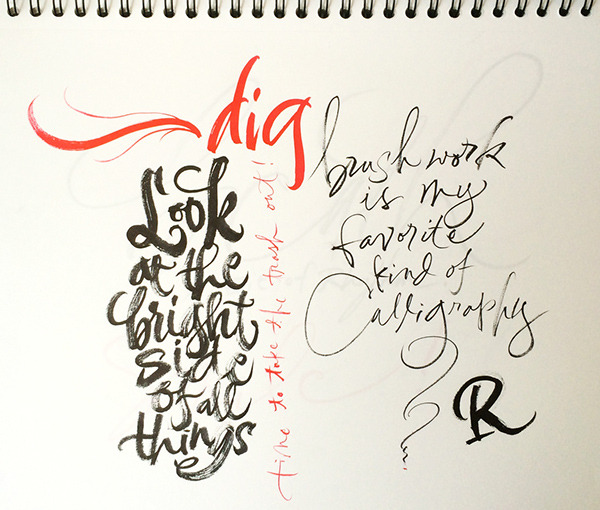 dig
Look
at the
bright
side
of all
things
time to take the trash out!
brush work
is my
favorite
kind of
Calligraphy
R